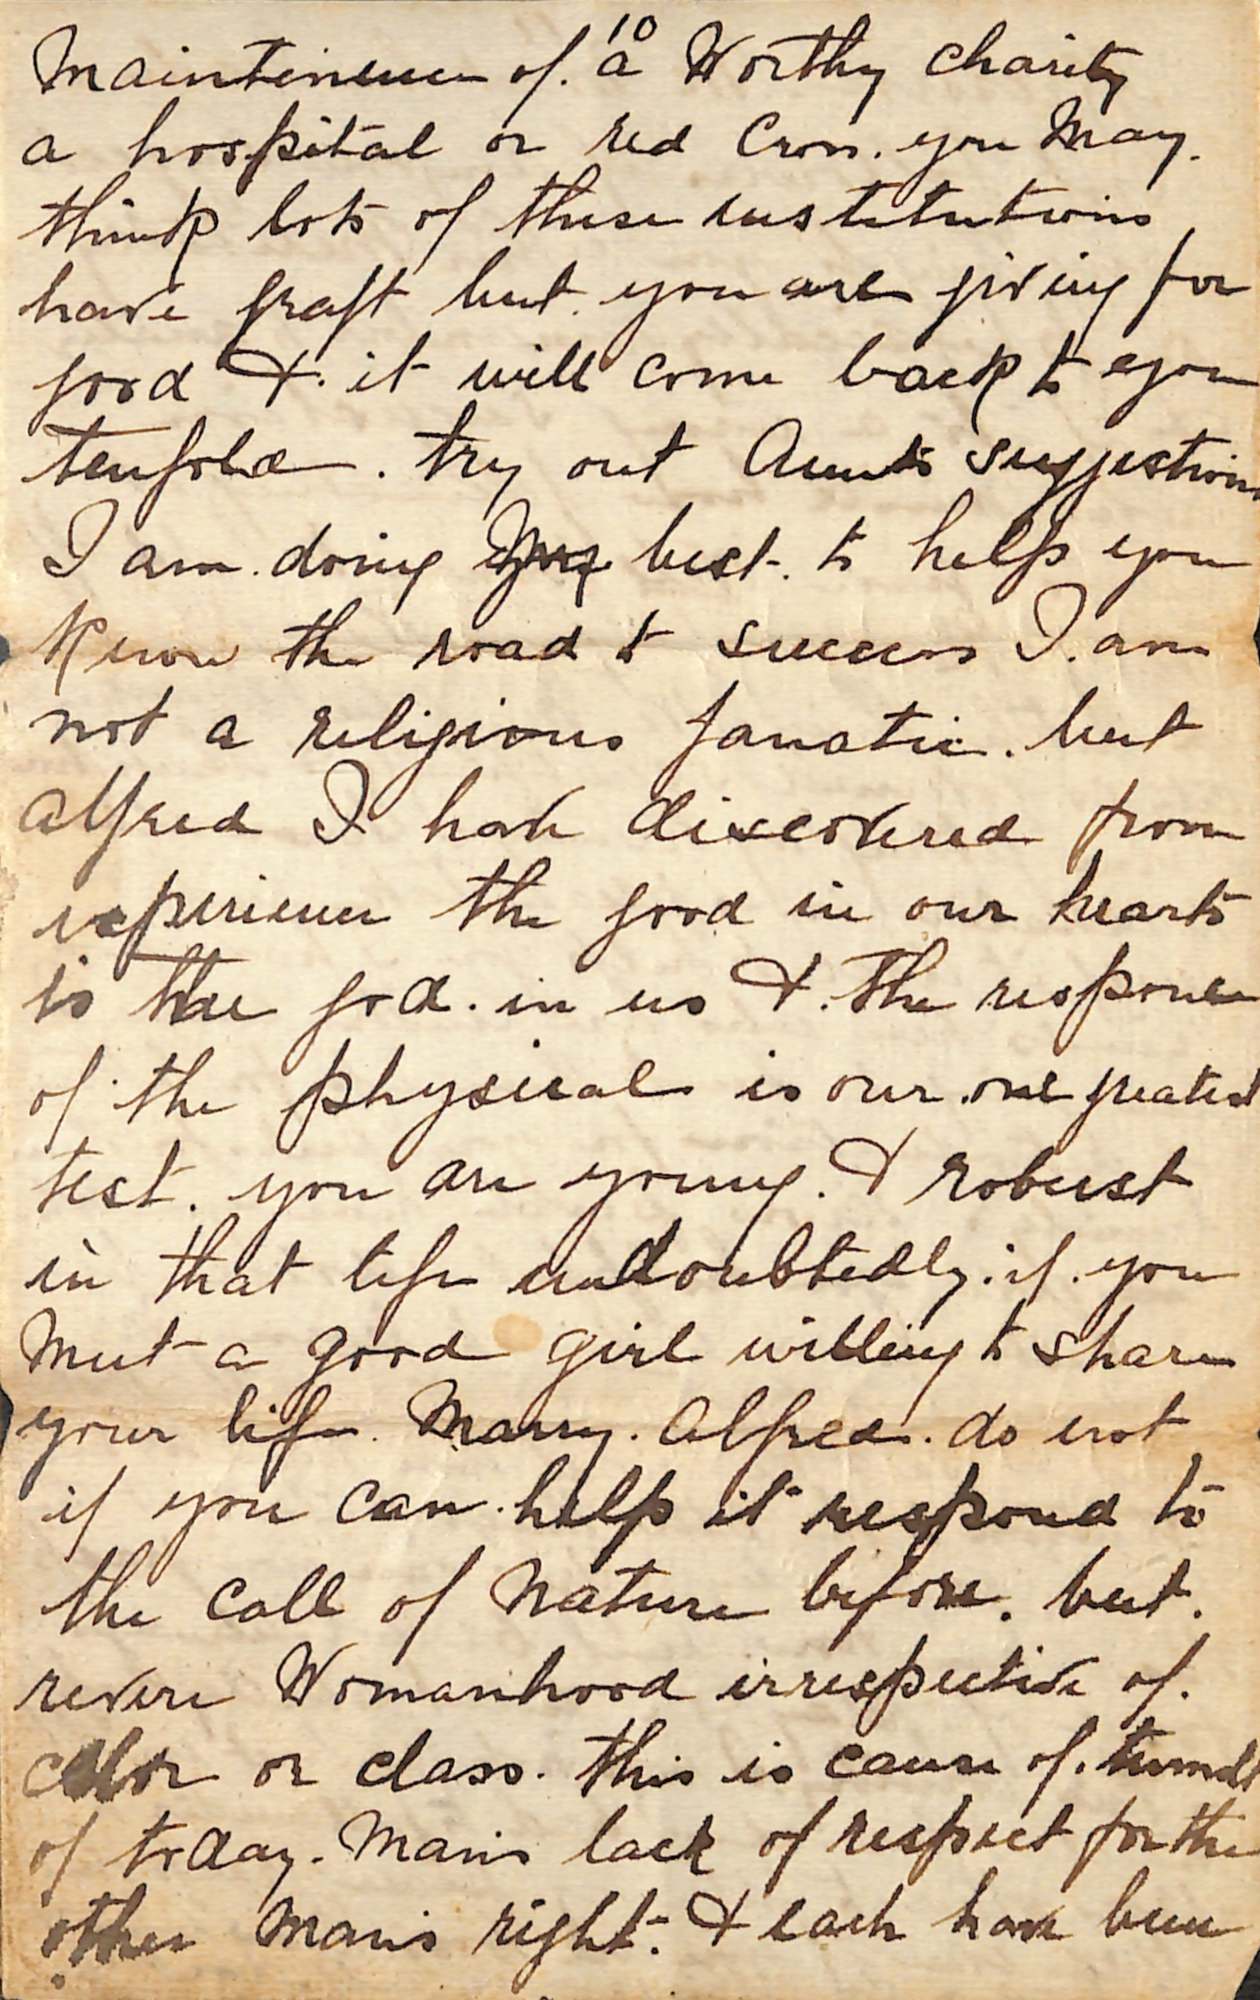 10
Maintinence of. a Worthy charity
a hospital or red Cross. you May.
think lots of these institutions
have graft but you are giving for
good &. it will come back to you
tenfold. try out Aunts suggestions
I am. doing My best. to help you
Know the road to success I. am
not a religious fanatic. but
Alfred I have discovered from
experience the good in our hearts
is the god. in us &. the response
of the physical is our one greatest
test. you are young. & robust
in that life undoubtedly. if. you
Meet a good girl willing to share
your life. Marry. Alfred. do not
if you can help it respond to
the call of Nature before. but.
revere Womanhood irrespective of.
color or class. this is cause of.
of today. Man's lack of respect for the
other Man's right. & each have been